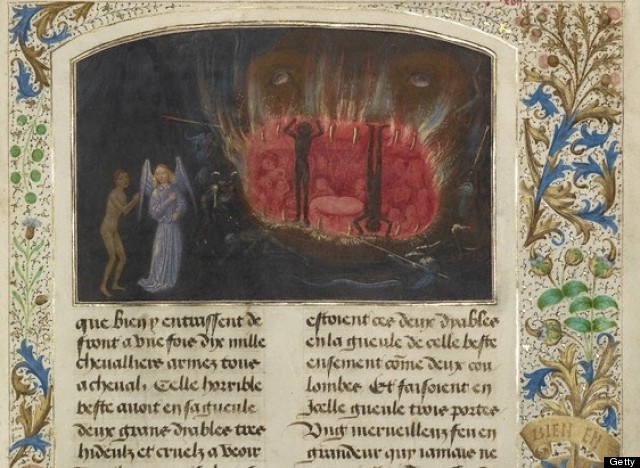 que bien y entraissent de
front a vne fois dix mille
cheualliers armez tous
a cheual. Celle horrible
beste auoit en sa gueule
deux grans dyables tres
hideux et cruelz a veoir
estoient ces deux dyables
en la gueule de celle beste
ensement cōme deux cou
lombes. Et faisoient en
Jcelle gueule trois portes
Vng merueilleux feu en
grandeur quy iamais ne
BIEN EN
Getty